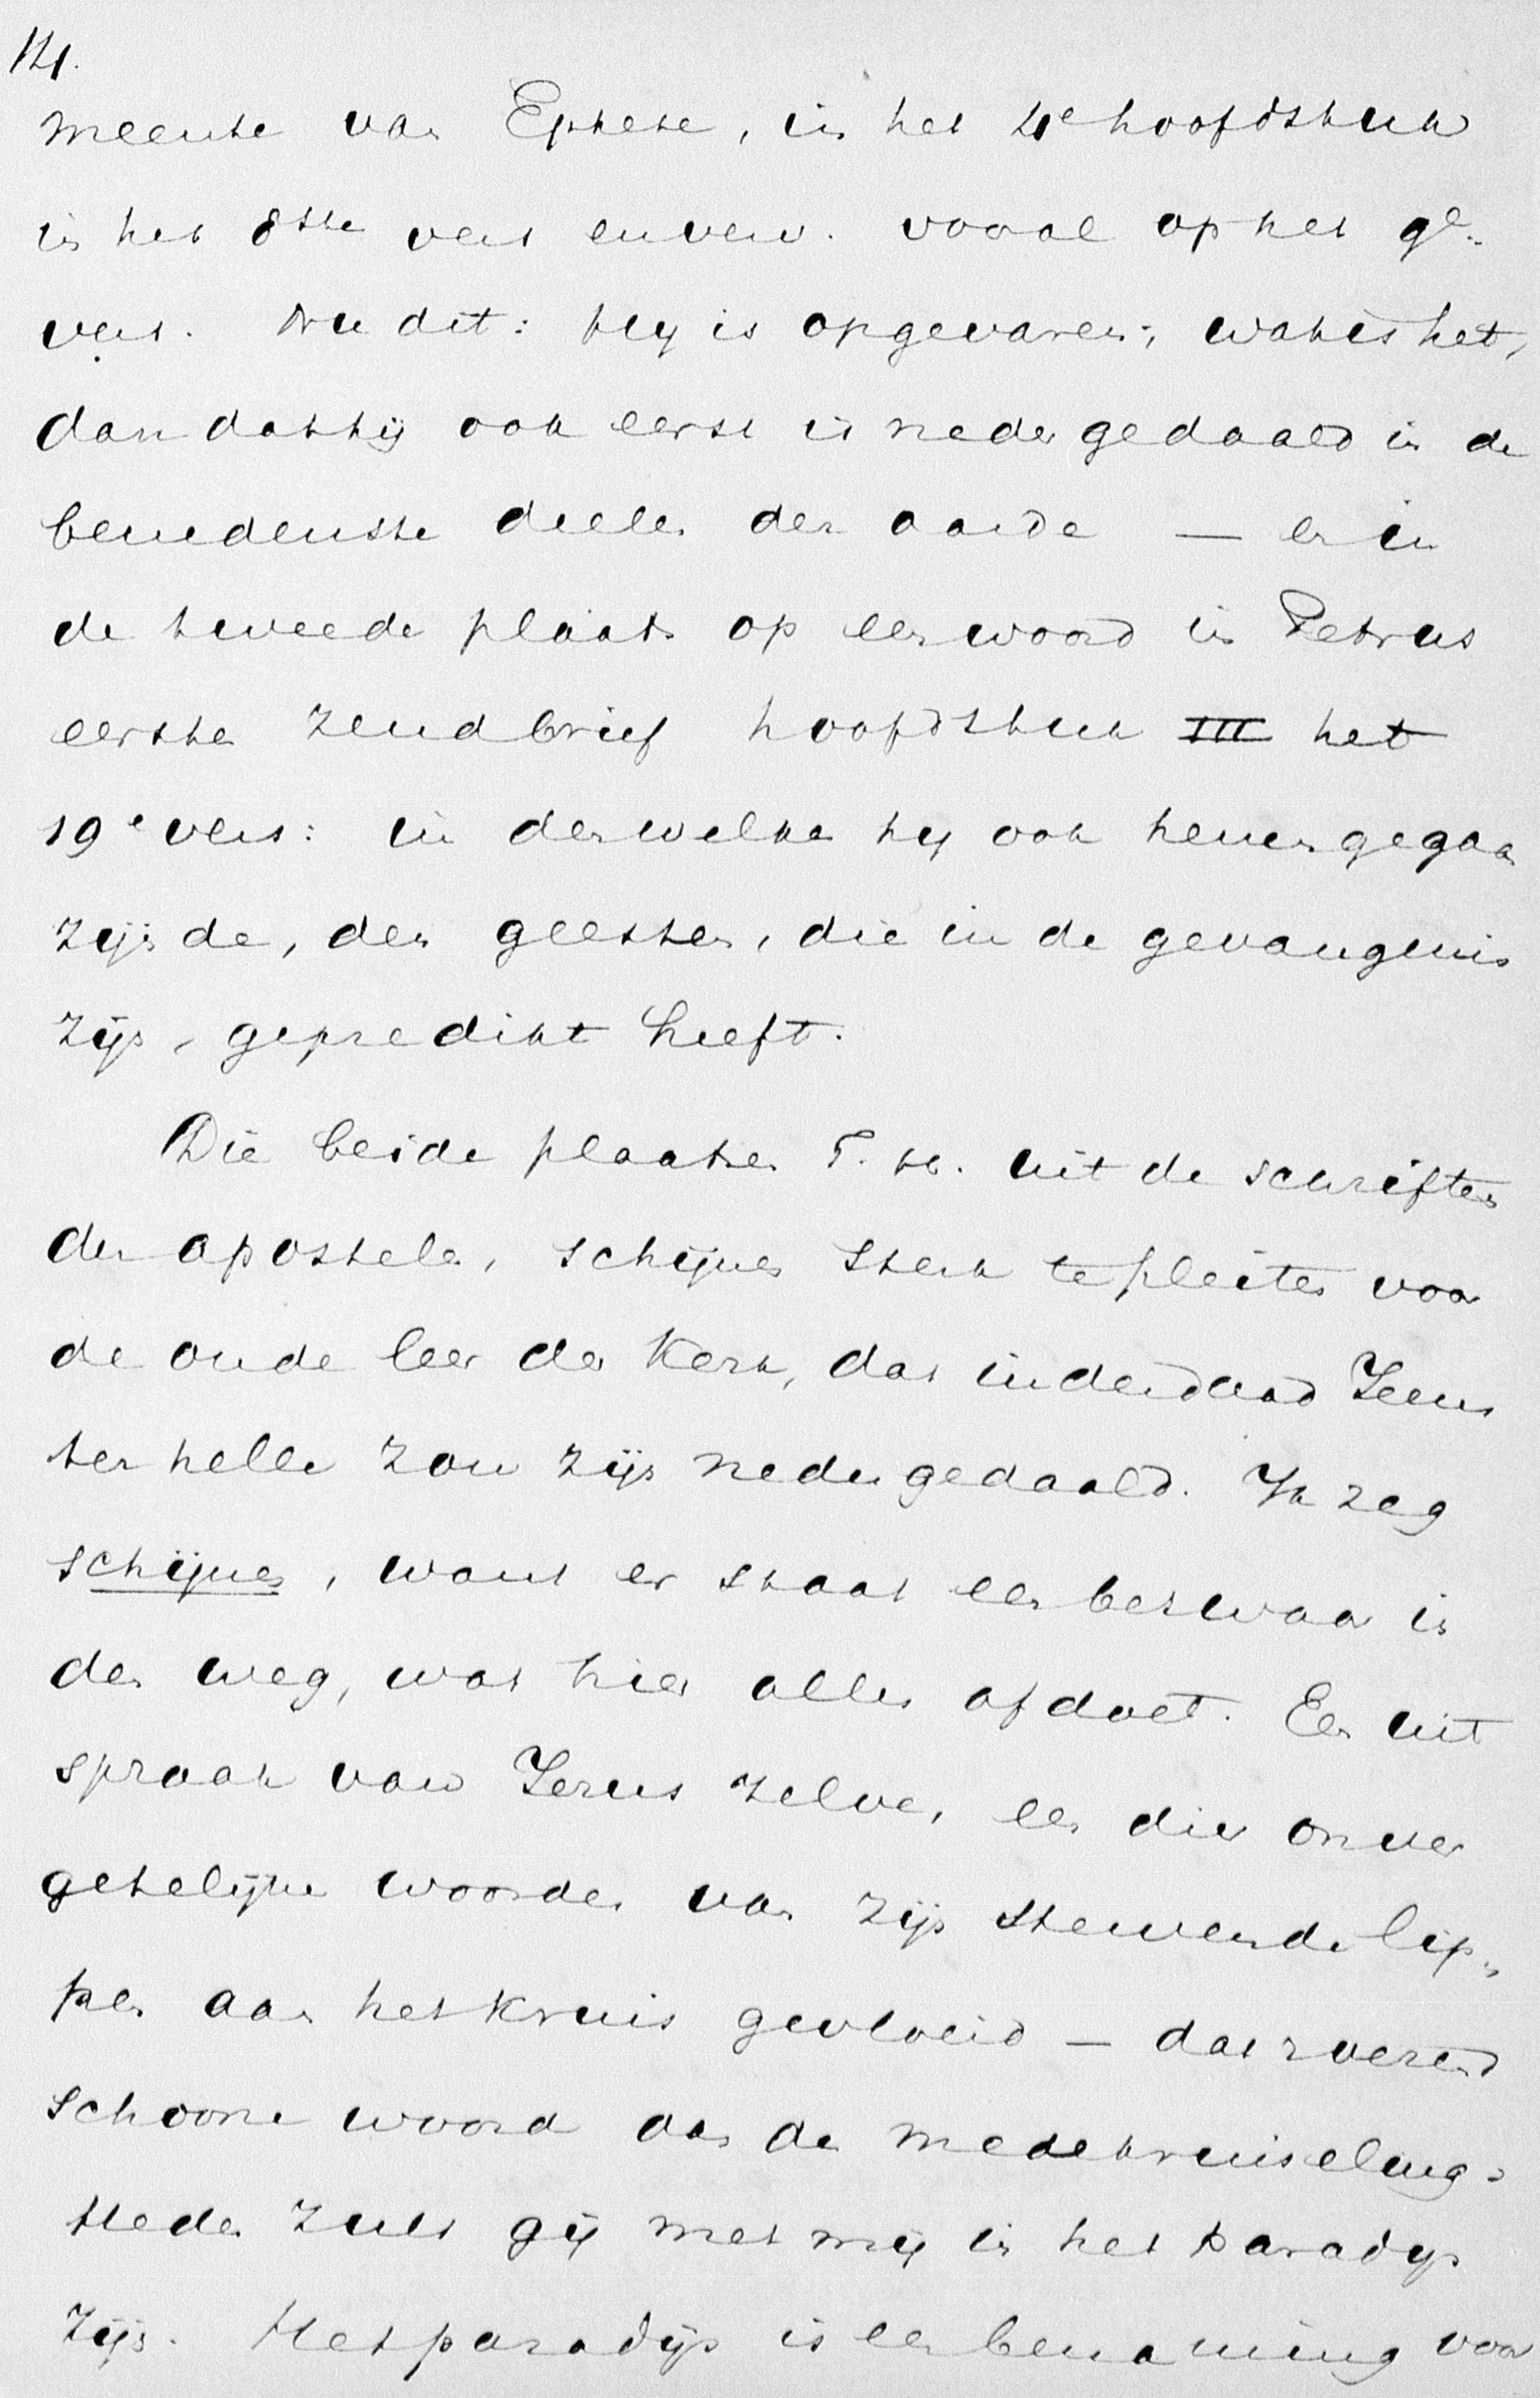 14.
meente van Ephese, in het 4e hoofdstuk
in het 8ste vers en verv. vooral op het 9e
vers. Nu dit: hij is opgevaren; wat is het,
dan dat hij ook eerst is nedergedaald in de
benedenste deelen der aarde — en in
de tweede plaats op een woord in Petrus
eerste zendbrief hoofdstuk III het
19e vers: in denwelken hij ook henengegaan
zijnde, den geesten, die in de gevangenis
zijn, gepredikt heeft.
Die beide plaatsen T. H. uit de schriften
der apostelen, schijnen sterk te pleiten voor
de oude leer der Kerk, dat inderdaad Jezus
ter helle zou zijn nedergedaald. Ik zeg
schijnen, want er staat een bezwaar in
den weg, wat hier alles afdoet. Een uit
spraak van Jezus zelven, een dier onver
getelijke woorden van zijn stervende lip-
pen aan het kruis gevloeid — dat
schoone woord aan den medekruiseling:
Heden zult gij met mij in het paradijs
zijn. Het paradijs is een benaming voor